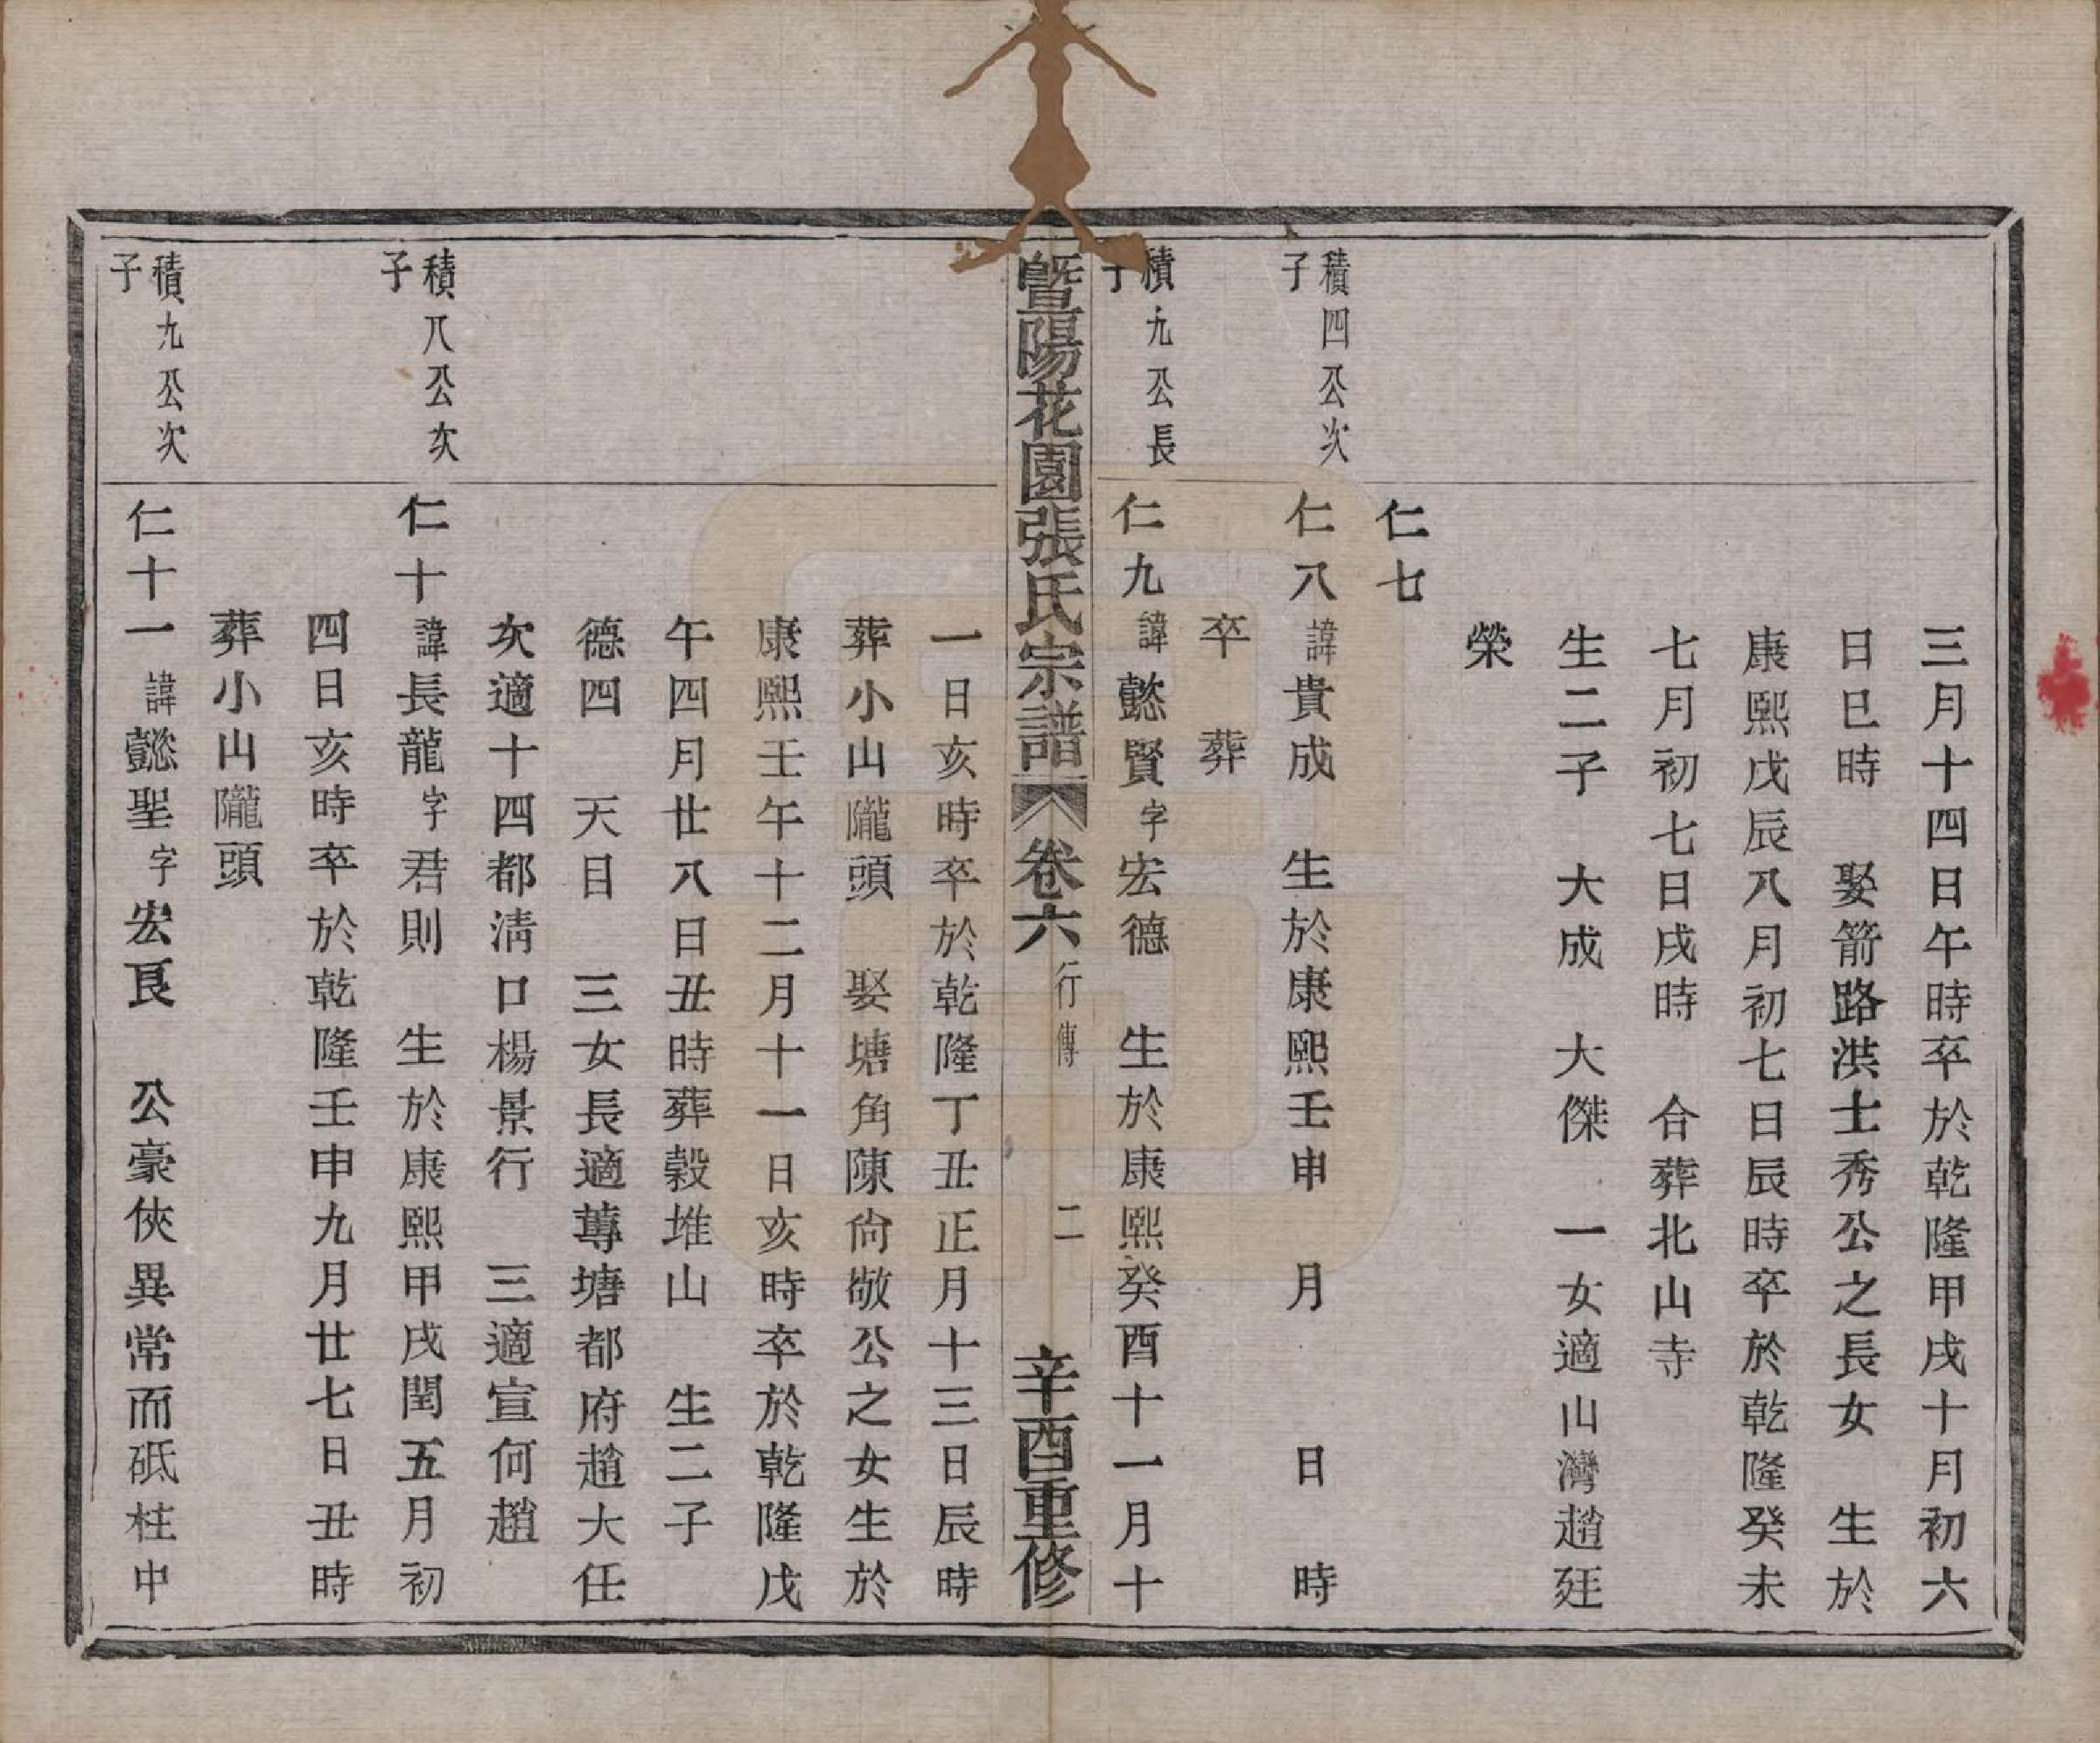 三月十四日午時卒於乾隆甲戌十月初六
日巳時　娶箭路洪士秀公之長女　生於
康熙戊辰八月初七日辰時卒於乾隆癸未
七月初七日戌時　合葬北山寺
生二子　大成　大傑　一女適山灣趙廷
榮
仁七
積四公次子
仁八諱貴成　生於康熙壬申　月　日　時
卒　葬
積九公長子
仁九諱懿賢字宏德　生於康熙癸酉十一月十
暨陽花園張氏宗譜　卷六　行傳　二　辛酉重修
一日亥時卒於乾隆丁丑正月十三日辰時
葬小山隴頭　娶塘角陳尙敬公之女生於
康熙壬午十二月十一日亥時卒於乾隆戊
午四月廿八日丑時葬穀堆山　生二子
德四　天目　三女長適蓴塘都府趙大任
次適十四都淸口楊景行　三適宣何趙
積八公次子
仁十諱長龍字君則　生於康熙甲戌閏五月初
四日亥時卒於乾隆壬申九月廿七日丑時
葬小山隴頭
積九公次子
仁十一諱懿聖字宏良　公豪俠異常而砥柱中